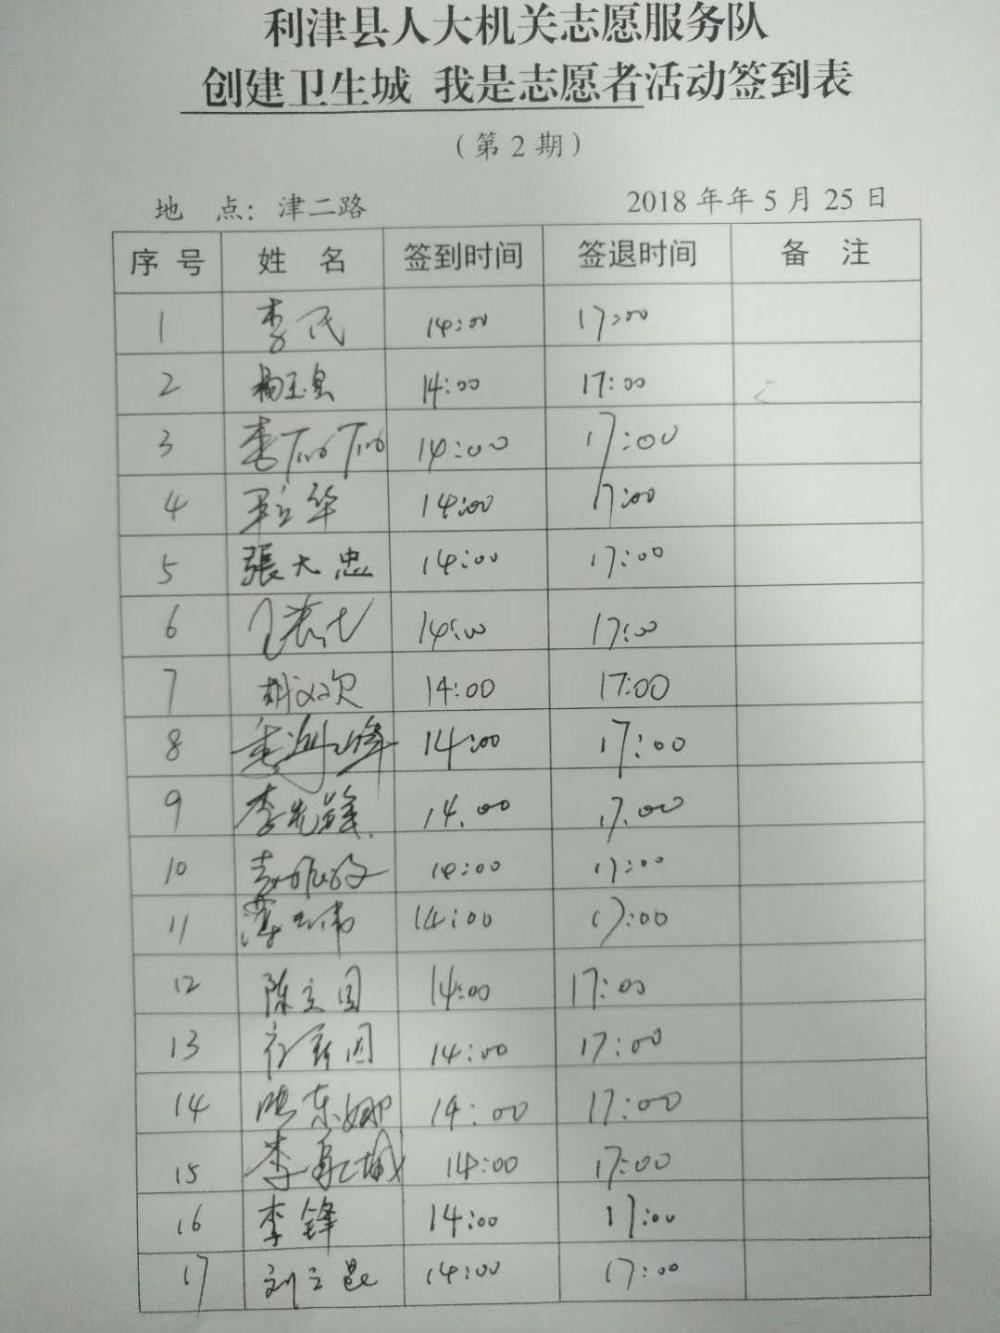 利津县人大机关志愿服务队
创建卫生城 我是志愿者活动签到表
（第2期）
地 点：津二路 2018年年5月25日
序号 姓名 签到时间 签退时间 备注
1 李民 14:00 17:00
2 杨玉县 14:00 17:00
3 李丽丽 14:00 17:00
4 立华 14:00 17:00
5 張大忠 14:00 17:00
6 14:00 17:00
7 胡双欢 14:00 17:00
8 14:00 17:00
9 李光锋 14.00 17.00
10 14:00 17:00
11 伟 14:00 17:00
12 陈立国 14:00 17:00
13 14:00 17:00
14 东娜 14:00 17:00
15 李 城 14:00 17:00
16 李锋 14:00 17:00
17 刘立昆 14:00 17:00